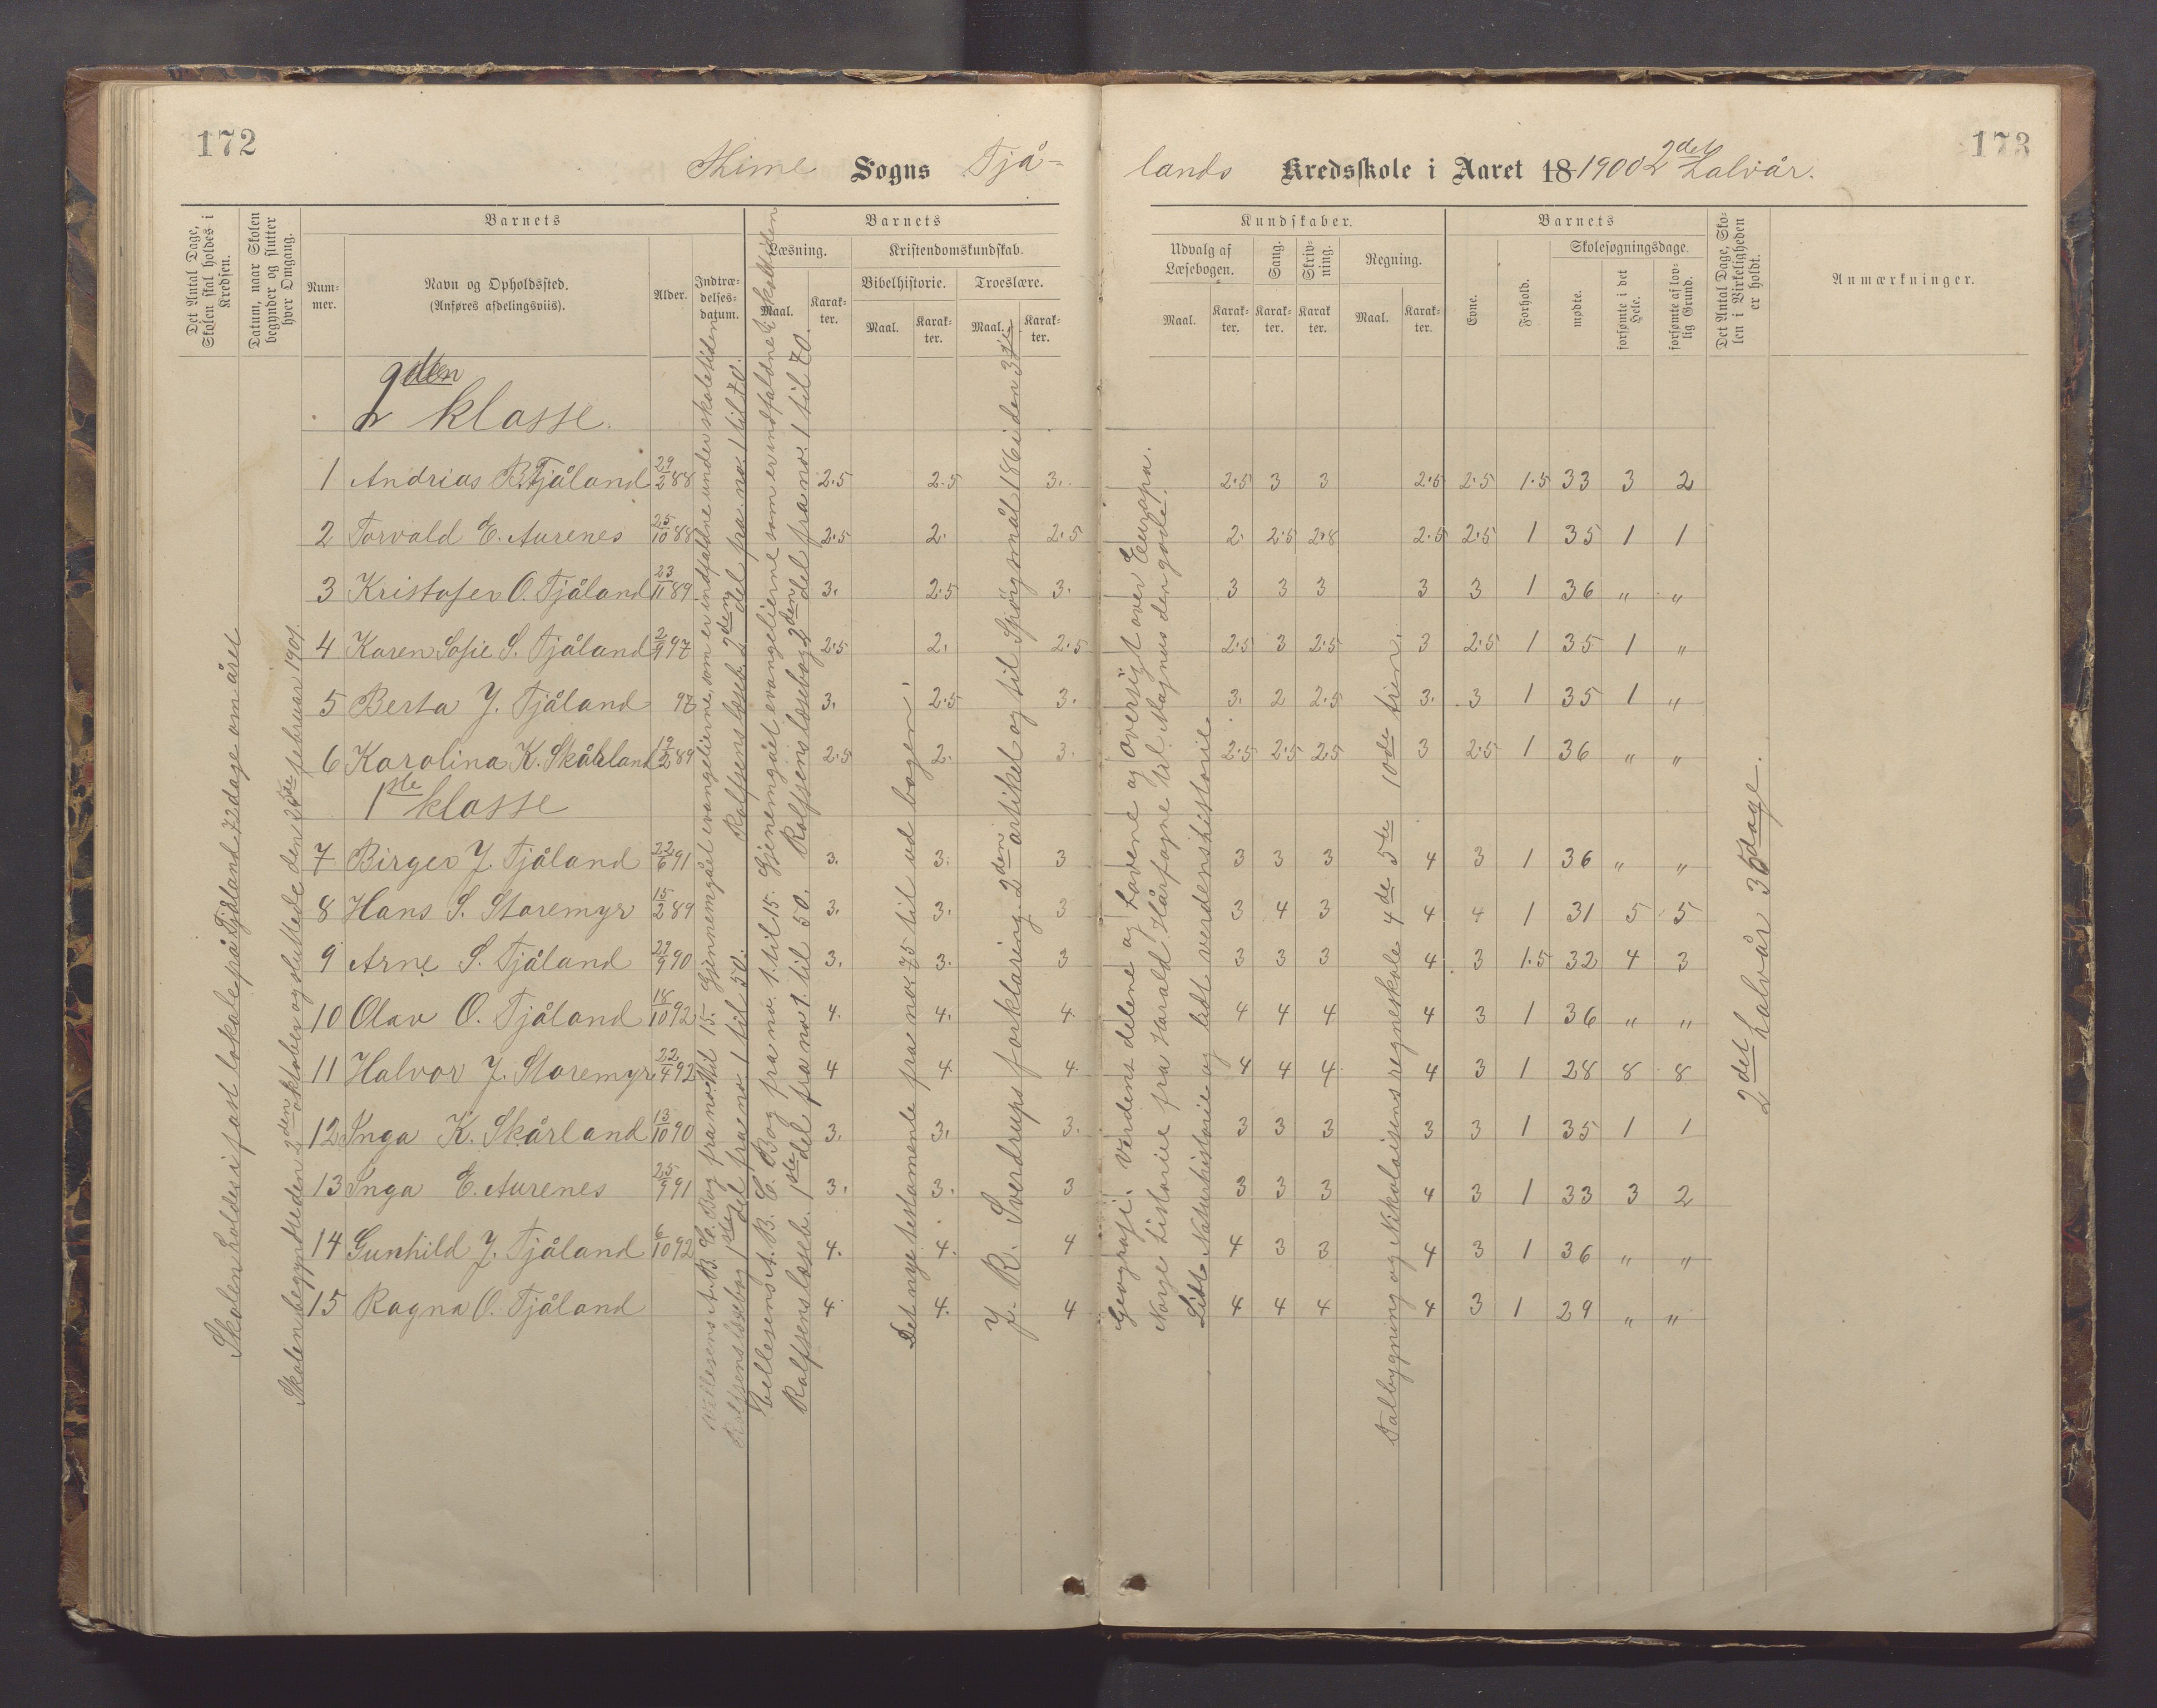 172
173
Thime Sogns Tjå-
lands Kredsskole i Aaret 18 1900 2det halvår.
Det Antal Dage, Skolen skal holdes i Kredsen.
Datum, naar Skolen begynder og slutter hver Omgang.
Barnets
Num-mer.
Navn og Opholdssted.
(Anføres afdelingsviis).
Alder.
Indtræ-delses-datum.
Barnets
Læsning.
Maal.
Karak-ter.
Kristendomskundskab.
Bibelhistorie.
Maal.
Karak-ter.
Troeslære.
Maal.
Karak-ter.
Kundskaber.
Udvalg af Læsebogen.
Maal.
Karak-ter.
Sang.
Karak-ter.
Skriv-ning.
Karak-ter.
Regning.
Maal.
Karak-ter.
Barnets
Evne.
Forhold.
Skolesøgningsdage.
mødte.
forsømte i det Hele.
forsømte af lov-lig Grund.
Det Antal Dage, Sko-len i Virkeligheden er holdt.
Anmærkninger.
2den klasse.
1 Andrias B. Tjåland 29/2 88 2.5 2.5 3. 2.5 3 3 2.5 2.5 1.5 33 3 2
2 Torvald E. Aurenes 25/10 88 2.5 2. 2.5 2. 2.5 2.8 2.5 2.5 1 35 1 1
3 Kristofer O. Tjåland 23/11 89 3. 2.5 3. 3 3 3 3 3 1 36 " "
4 Karen Sofie S. Tjåland 2/9 97 2.5 2. 2.5 2.5 3 2.5 3 2.5 1 35 1 "
5 Berta J. Tjåland 97 3. 2.5 3. 3. 2 2.5 3. 3 1 35 1 "
6 Karolina K. Skårland 19/2 89 2.5 2. 3. 2.5 2.5 2.5 3 2.5 1 36 " "
1ste klasse
7 Birger J. Tjåland 22/6 91 3. 3. 3 3 3 3 4 3 1 36 " "
8 Hans S. Storemyr 15/2 89 3. 3. 3 3 4 3 4 4 1 31 5 5
9 Arne S. Tjåland 29/9 90 3. 3. 3 3 3 3 4 3 1.5 32 4 3
10 Olav O. Tjåland 18/10 92 4. 4. 4. 4 4 4 4 3 1 36 " "
11 Halvor J. Storemyr 22/4 92 4 4 4 4 4 4 4 3 1 28 8 8
12 Inga K. Skårland 13/10 90 3. 3. 3. 3 3 3 3 3 1 35 1 1
13 Inga E. Aurenes 25/9 91 3. 3. 3 3 3 3 4 3 1 33 3 2
14 Gunhild J. Tjåland 6/10 92 4. 4. 4 4 3 3 4 3 1 36 " "
15 Ragna O. Tjåland 4 4. 4 4 4 4 4 3 1 29 " "
Skolen holdes i fast lokale på Tjåland 72 dage om året
Skolen begyndte den 2den oktober og sluttede den februar 1901.
A. B. C. Bog fra no. 1 til 15. Gjennemgået evangelierne, som er indfaldne under skoletiden
Rolfsens læsebog 1ste del fra no 1 til 50. Rolfsens læseb. 2den del fra no. 1 til 70.
A. B. C. Bog fra no. 1. til 15. Gjenemgået evangelierne som er indfaldne i skoletiden
Rolfsens læseb. 1ste del fra no 1. til 50. Rolfsens læsebog 2den del fra no. 1 til 70.
Det nye testamente fra no. 75 til ud bogen.
J. R. Sverdrups forklaring. 2den artikel og til Spørgsmål 186 i den 3dje
Geografi. Verdens delene og havene og oversigt over Europa.
Norges historie fra Harald Hårfagre til Magnus den gode.
Lidt Naturhistorie og lidt verdenshistorie.
Talbygning og Nikolaisens regneskole 4de 5de 10de trin.
2det halvår 36 dage.